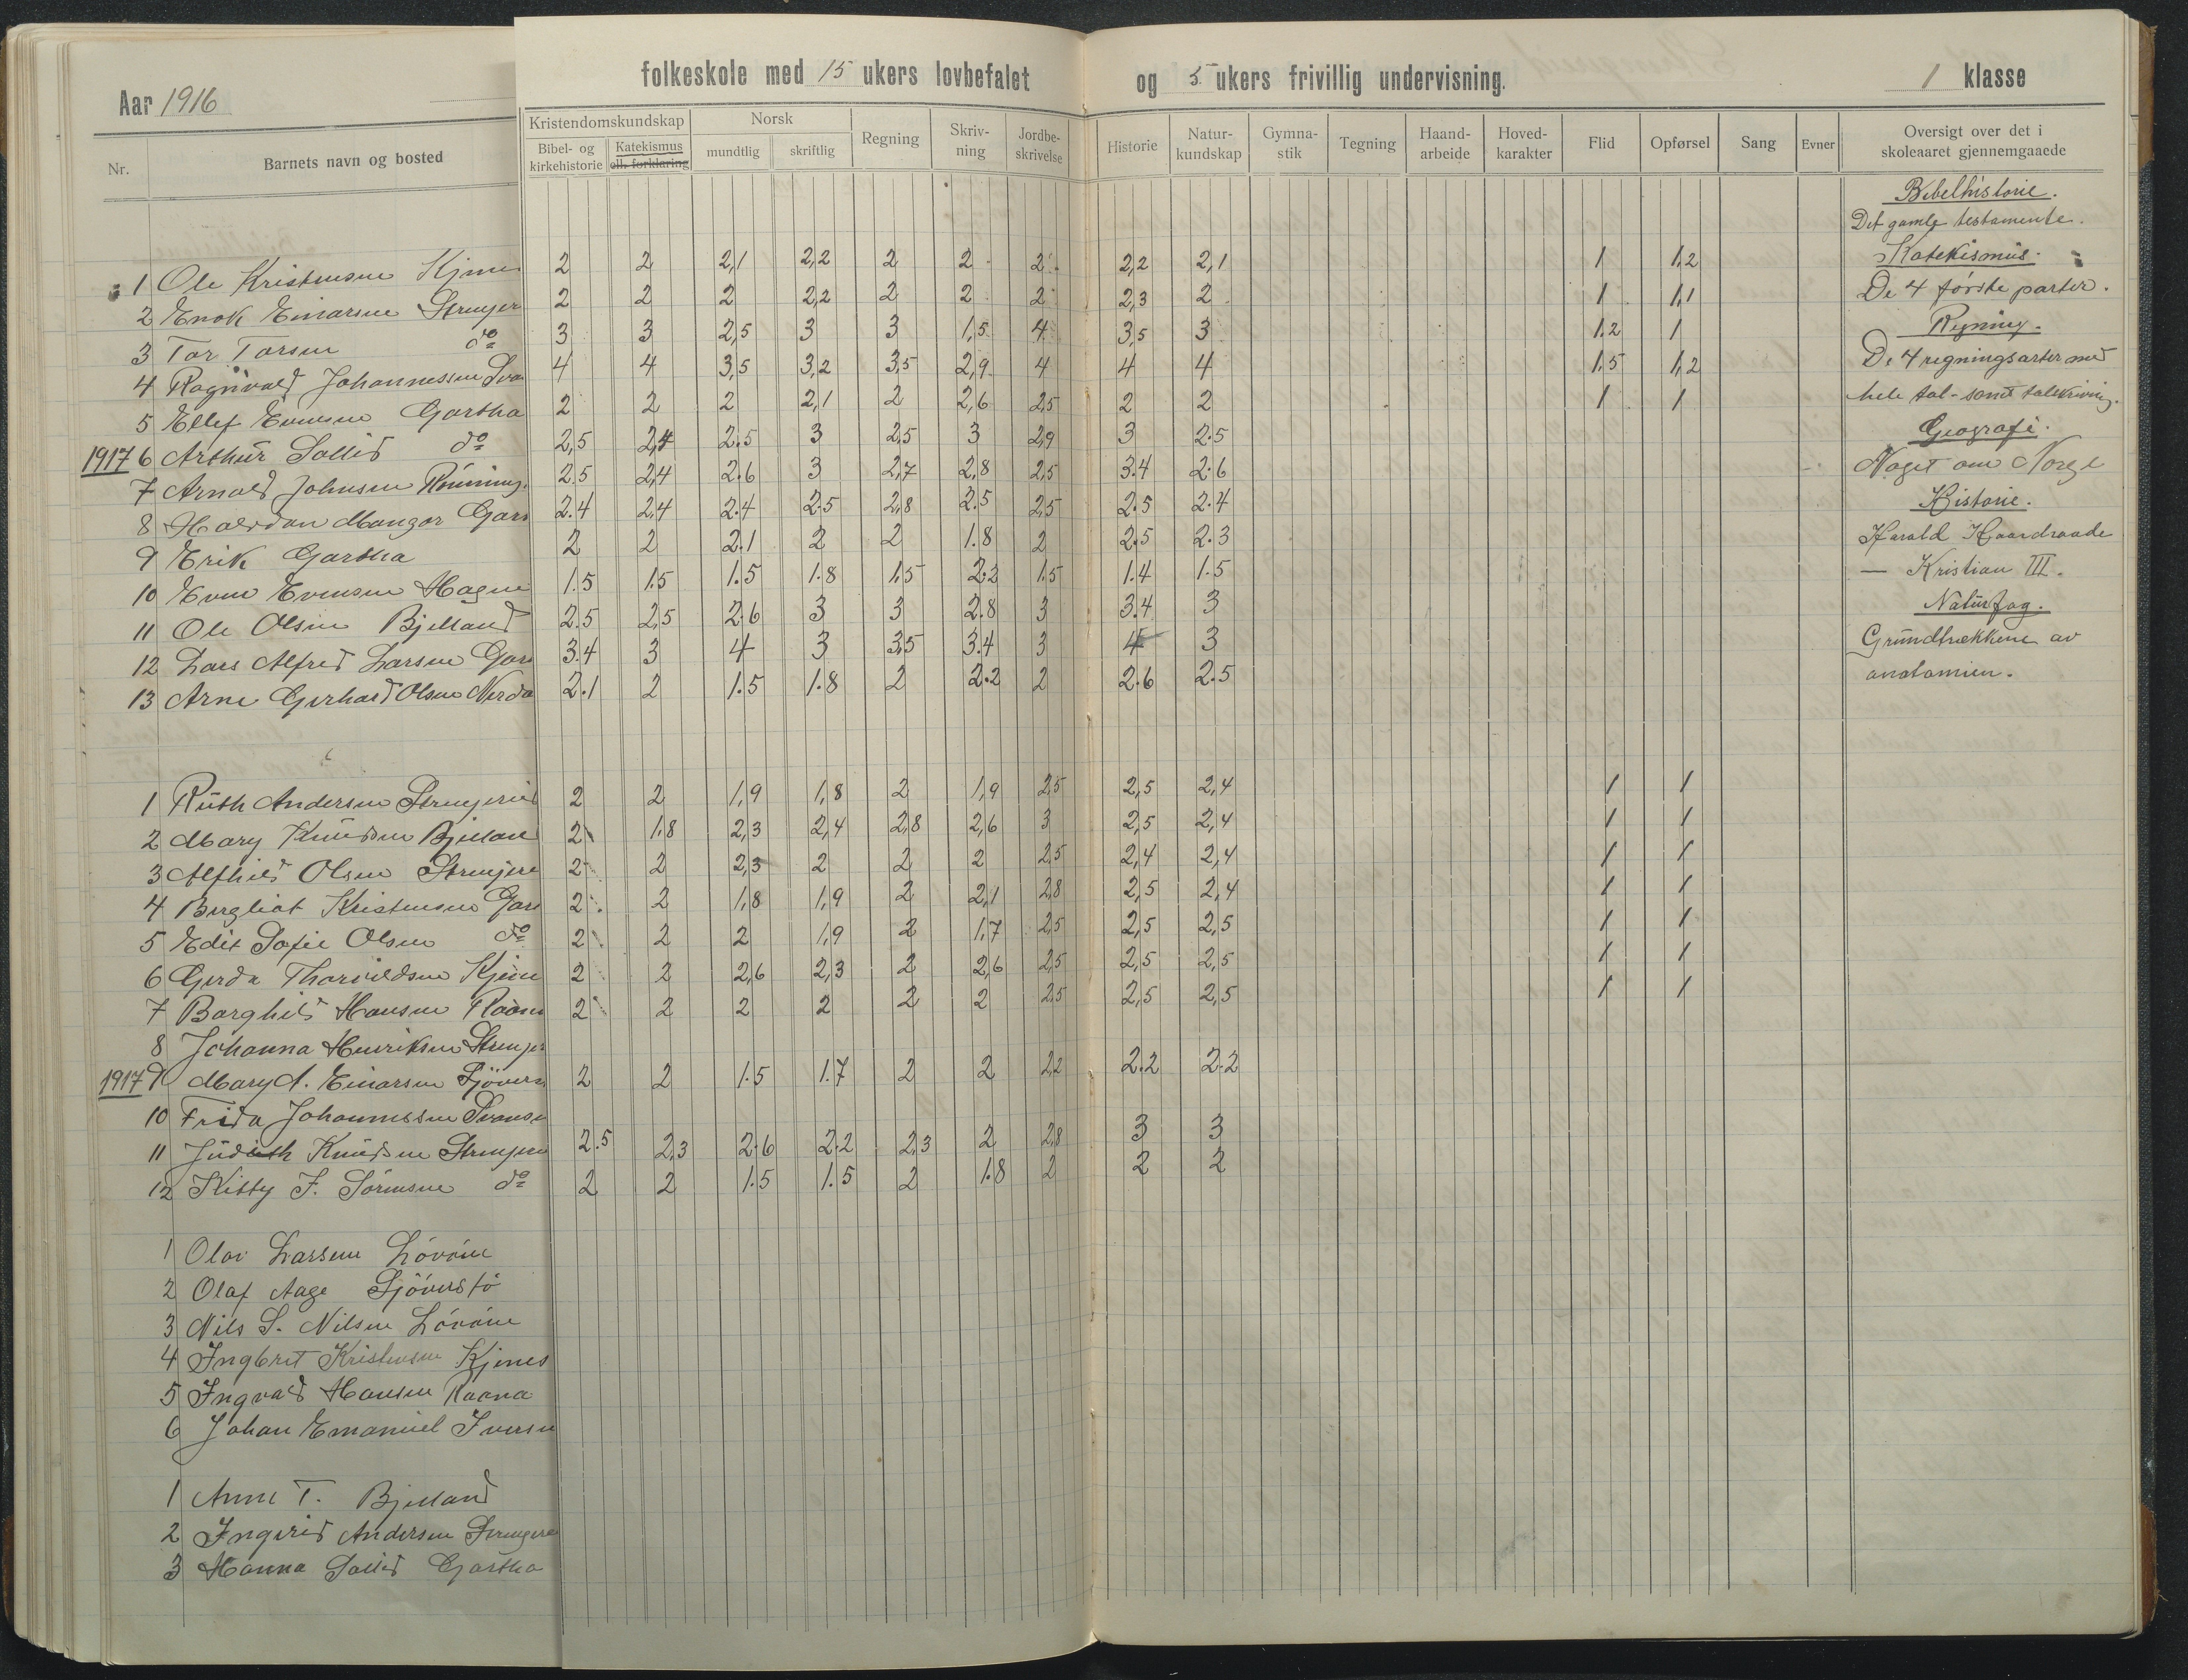 Aar 1916
folkeskole med 15 ukers lovbefalet og 5 ukers frivillig undervisning. 1 klasse
Nr. Barnets navn og bosted
Kristendomskundskap Norsk Regning Skriv- ning Jordbe- skrivelse Historie Natur- kundskap Gymna- stik Tegning Haand- arbeide Hoved- karakter Flid Opførsel Sang Evner Oversigt over det i skoleaaret gjennemgaaede
Bibel- og kirkehistorie Katekismus ell. forklaring mundtlig skriftlig
1 Ole Kristensen 2 2 2,1 2,2 2 2 2 2,2 2,1 1 1,2
2 Enok Einarsen 2 2 2 2,2 2 2 2 2,3 2 1 1,1
3 Tor Torsen do 3 3 2,5 3 3 1,5 4 3,5 3 1,2 1
4 Ragnvald Johannessen Sva 4 4 3,5 3,2 3,5 2,9 4 4 4 1,5 1,2
5 Ellef Evensen Gartha 2 2 2 2,1 2 2,6 2,5 2 2 1 1
1917 6 Arthur Sollid do 2,5 2,4 2.5 3 2,5 3 2,9 3 2.5
7 Arnold Johnsen 2,5 2,4 2.6 3 2,7 2,8 2,5 3.4 2.6
8 Halvdan Mangor Gars 2.4 2,4 2.4 2.5 2,8 2.5 2,5 2.5 2.4
9 Erik Gartha 2 2 2.1 2 2 1.8 2 2.5 2.3
10 Even Evensen Hagen 1.5 1.5 1.5 1.8 1,5 2.2 1.5 1.4 1.5
11 Ole Olsen Bjelland 2.5 2,5 2.6 3 3 2.8 3 3.4 3
12 Lars Alfred Larsen Gars 3.4 3 4 3 3,5 3.4 3 4 3
13 Arne Gerhard Olsen 2.1 2 1.5 1.8 2 2.2 2 2.6 2.5
1 Ruth Andersen 2 2 1,9 1,8 2 1,9 2,5 2,5 2,4 1 1
2 Mary Knudsen Bjellan 2 1,8 2,3 2,4 2,8 2,6 3 2,5 2,4 1 1
3 Alfhild Olsen 2 2 2,3 2 2 2 2,5 2,4 2,4 1 1
4 Bergliot Kristensen Gars 2 2 1,8 1,9 2 2,1 2,8 2,5 2,4 1 1
5 Edit Sofie Olsen do 2 2 2 1,9 2 1,7 2,5 2,5 2,5 1 1
6 Gerda Thorvildsen 2 2 2,6 2,3 2 2,6 2,5 2,5 2,5 1 1
7 Borghild Hansen Raan 2 2 2 2 2 2 2,5 2,5 2,5 1 1
8 Johanna Henriksen
1917 9 Mary A. Einarsen Sjövers 2 2 1.5 1.7 2 2 2,2 2.2 2.2
10 Frida Johannessen
11 Judith Knudsen 2.5 2,3 2.6 2.2 2,3 2 2,8 3 3
12 Kitty F. Sörensen do 2 2 1.5 1.5 2 1.8 2 2 2
1 Olav Larsen
2 Olaf Aage Sjöverstö
3 Nils S. Nilsen
4 Ingbret Kristensen Kjenes
5 Ingvald Hansen Raana
6 Johan Emanuel Iversen
1 Anne T. Bjelland
2 Ingerid Andersen
3 Hanna Sollid Gartha
Bibelhistorie.
Det gamle testamente.
Katekismus.
De 4 første parter.
Regning.
De 4 regningsarter med
hele tal - samt talskrivning.
Geografi.
Noget om Norge
Historie.
Harald Haardraade
— Kristian III.
Naturfag.
Grundtrækkene av
anatomien.